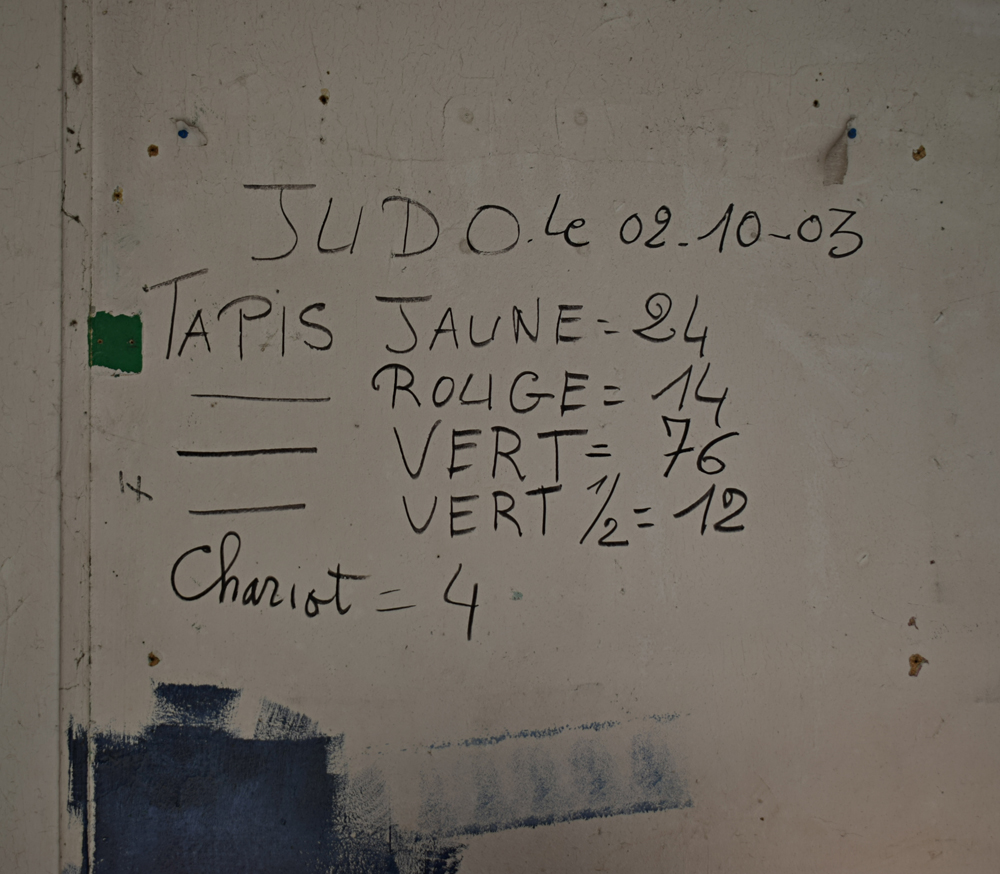 JUDO. le 02-10-03
TAPIS JAUNE = 24
—— ROUGE = 14
—— VERT = 76
—— VERT 1/2 = 12
Chariot = 4